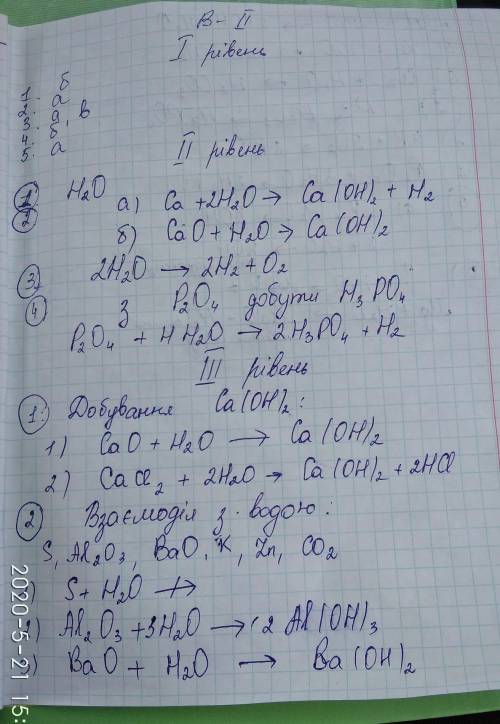 В-II
I рівень
1. б
2. а
3. а, в
4. б
5. а
II рівень
1. H₂O
2. а) Ca + 2H₂O → Ca(OH)₂ + H₂
б) CaO + H₂O → Ca(OH)₂
3) 2H₂O → 2H₂ + O₂
4) З P₂O₄ добути H₃PO₄
P₂O₄ + 4H₂O → 2H₃PO₄ + H₂
III рівень
1. Добування Ca(OH)₂:
1) CaO + H₂O → Ca(OH)₂
2) CaCl₂ + 2H₂O → Ca(OH)₂ + 2HCl
2 Взаємодія з водою:
S, Al₂O₃, BaO, K, Zn, CO₂
) S + H₂O ↛
) Al₂O₃ + 3H₂O → 2 Al(OH)₃
) BaO + H₂O → Ba(OH)₂
2020-5-21 15: